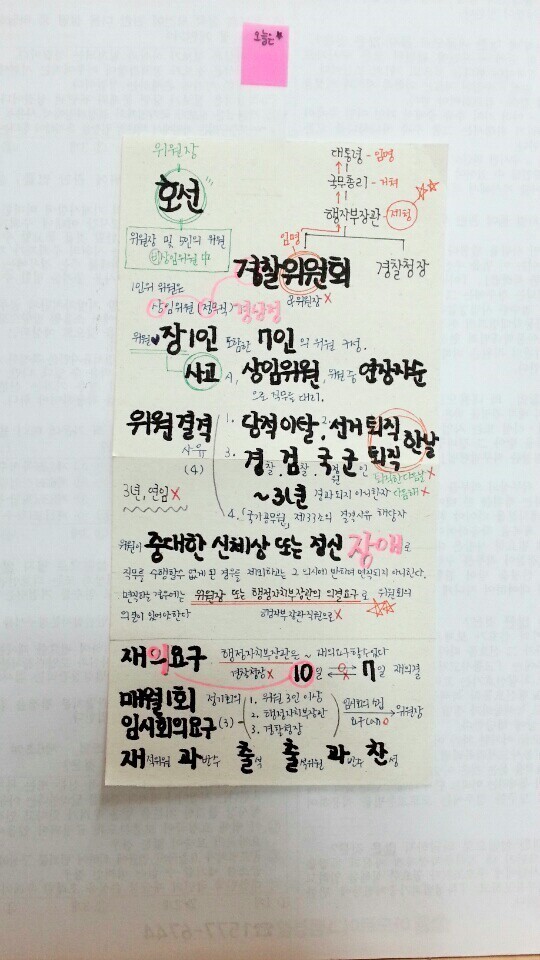 오늘은★
위원장
호선
위원장 및 5인의 위원
비상임위원 中
대통령 - 임명
국무총리 - 거쳐
행자부장관 - 제청
임명
경찰위원회
경찰청장
&위원장 X
1인의 위원은
상임위원 (정무직) 경상정
위원♥장1인 포함한 7인의 위원 구성.
사고 시, 상임위원, 위원 중 연장자순
으로 직무를 대리.
위원 결격
사유
(4)
1. 당적이탈, 2. 선거퇴직
3. 경찰, 검찰, 국정원, 군인 퇴직
한날
퇴직한 다음날 X
~3년 경과되지 아니한자 다음해 X
4. 「국가공무원」 제33조의 결격사유 해당자
3년, 연임 X
위원이 중대한 신체상 또는 정신 장애로
직무를 수행할수 없게 된 경우를 제외하고는 그 의사에 반하여 면직되지 아니한다.
면직하는 경우에는 위원장 또는 행정자치부장관의 의결요구로 위원회의
의결이 있어야한다
행자부 장관 직원으로 X
재의요구 행정자치부장관은 ~ 재의요구할수있다
경찰청장 X 10일 7일 재의결
매월1회 정기회의
임시회의요구 (3)
1. 위원 3인 이상
2. 행정자치부장관
3. 경찰청장
임시회의 소집
요구 can O
위원장
재적위원 과반수 출석 출석위원 과반수 찬성
1577-6744